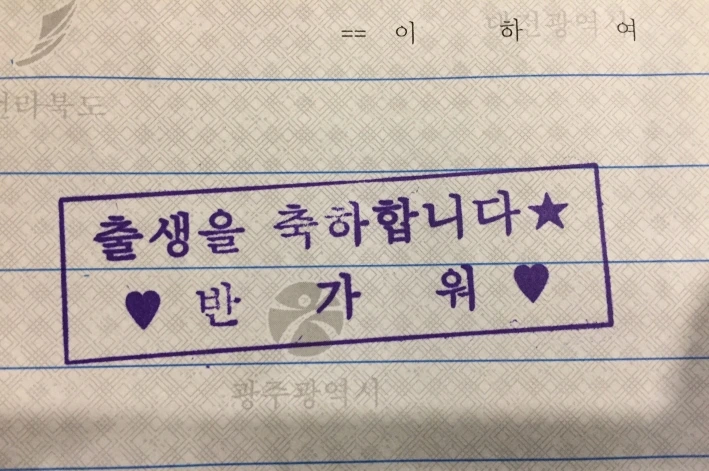 == 이 하 여
대전광역시
전라북도
출생을 축하합니다★
♥ 반 가 워 ♥
광주광역시